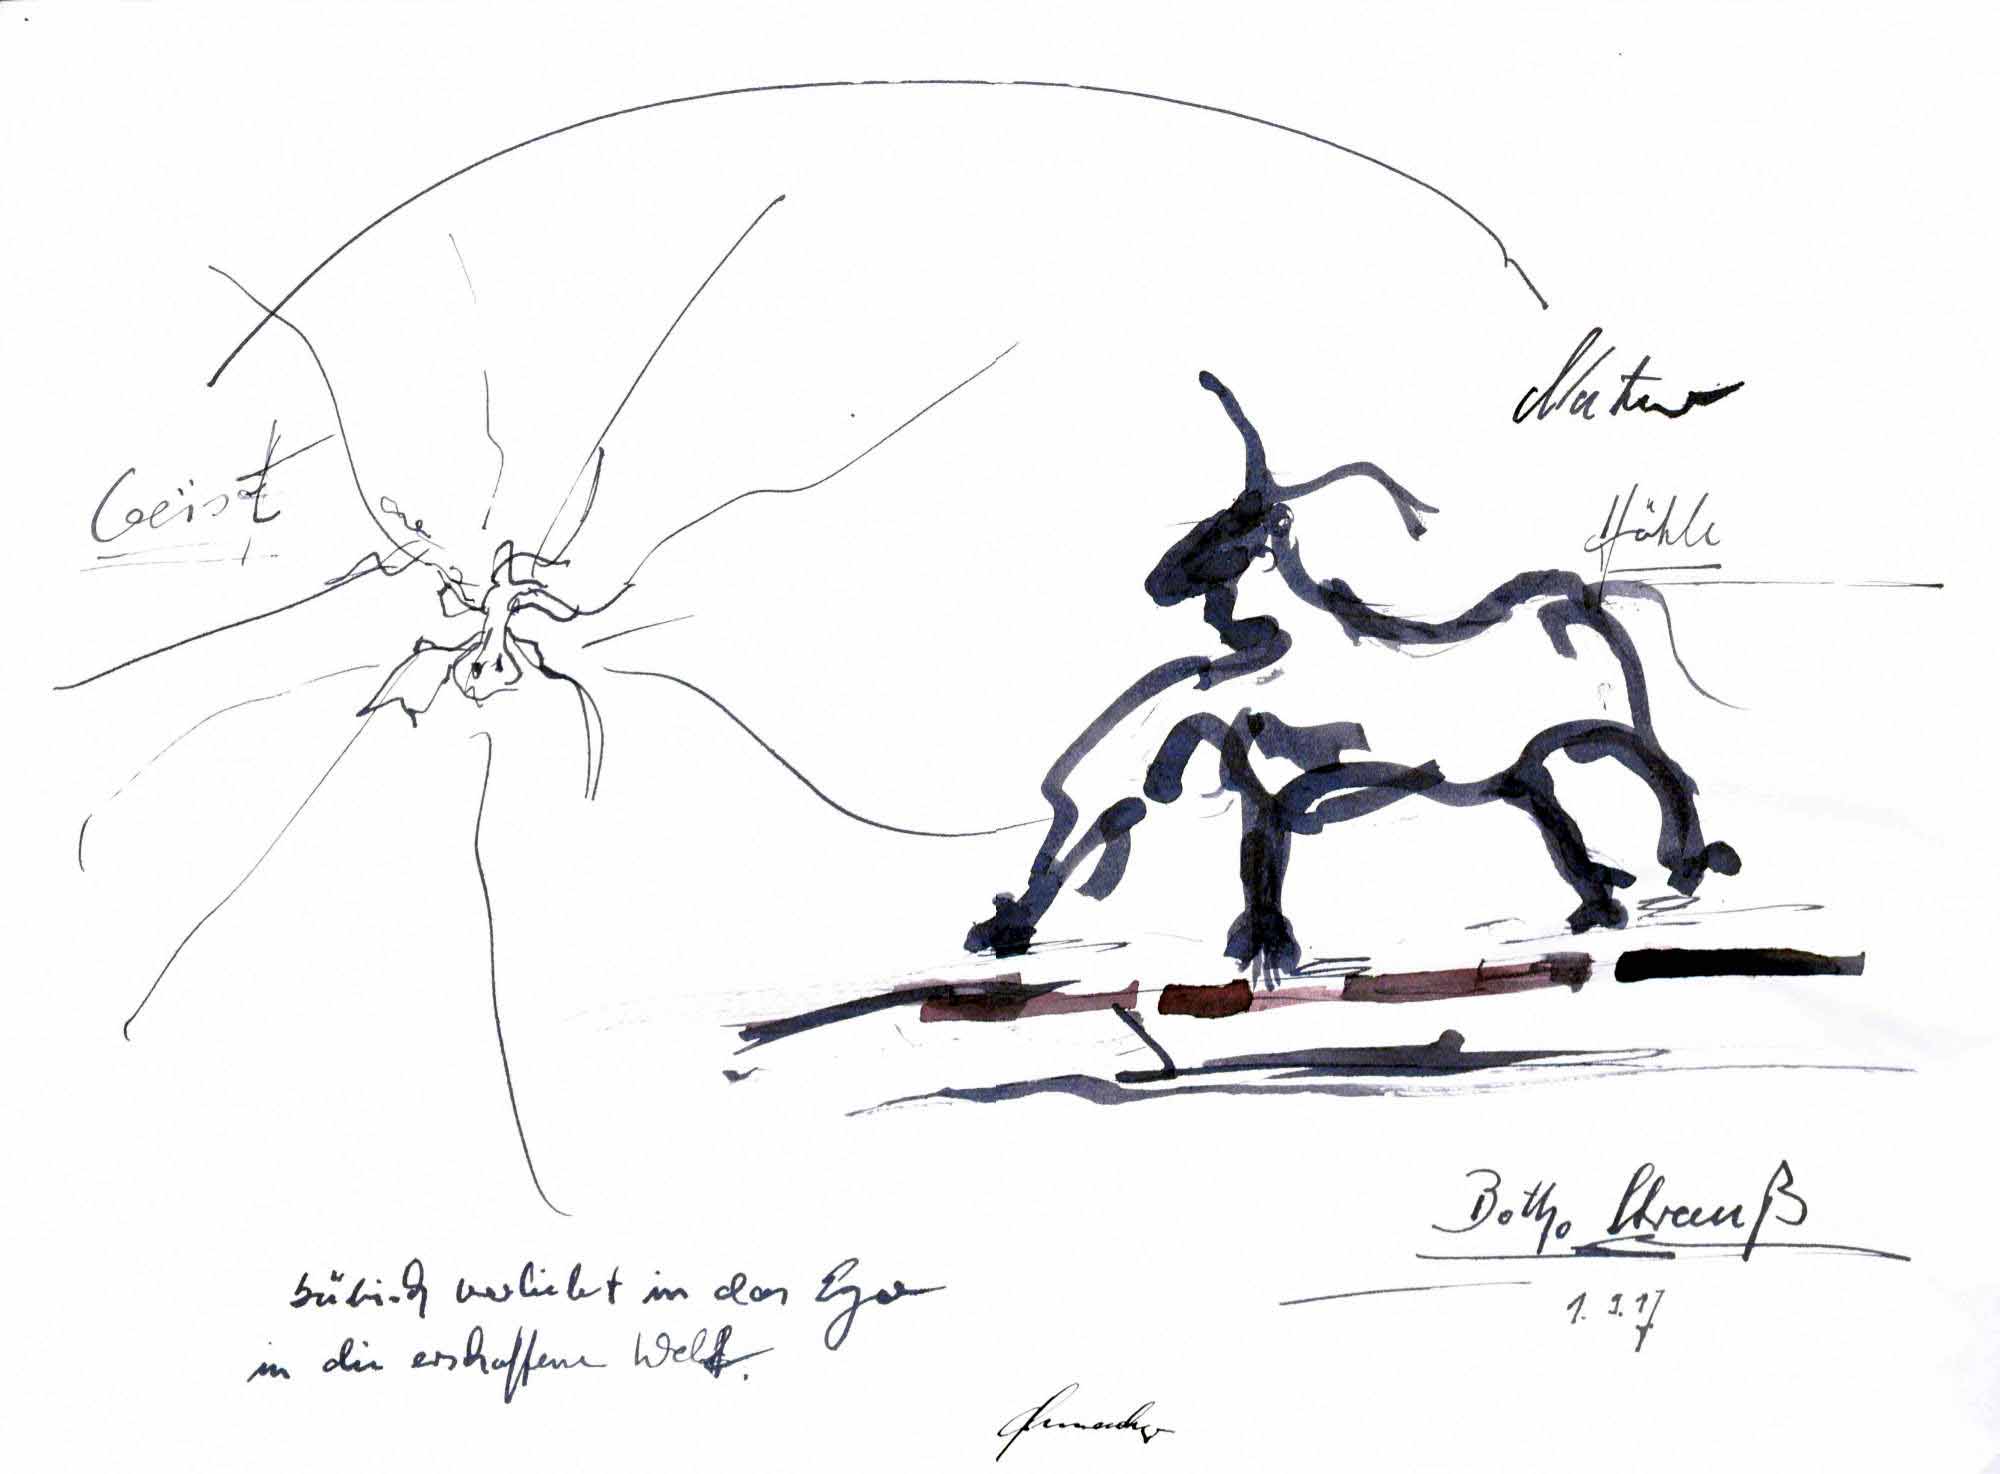 Natur
Geist
Höhle
Botho Strauß
1. 9. 17
bübisch verliebt in das Ego
in die erschaffene Welt.